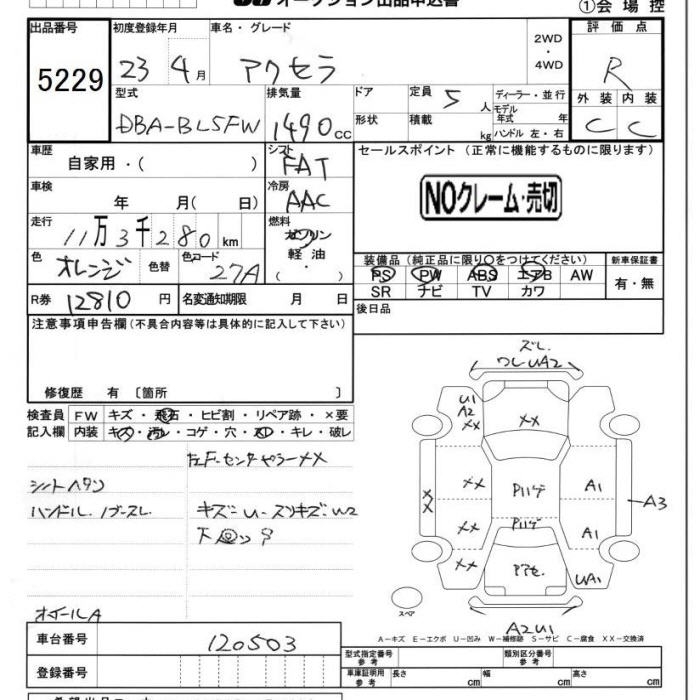 オークション出品申込書
①会場控
出品番号 初度登録年月 車名・グレード 2WD・4WD 評価点
5229 23年 4月 アクセラ R
型式 排気量 ドア 定員 5人 ディーラー・並行 外装 内装
DBA-BL5FW 1490cc 形状 積載 kg モデル年式 年 ハンドル 左・右 C C
車歴 自家用・( シフト FAT セールスポイント (正常に機能するものに限ります)
車検 年 月( 日) 冷房 AAC NOクレーム・売切
走行 11万3千280km 燃料 ガソリン 軽油 ( ・ )
色 オレンジ 色替 色コード 27A 装備品(純正品に限り○をつけてください) 新車保証書
PS PW ABS エアB AW 有・無
SR ナビ TV カワ
R券 12810円 名変通知期限 月 日 後日品
注意事項申告欄(不具合内容等は具体的に記入して下さい)
修復歴 有 〔箇所 〕
検査員 FW キズ・飛石・ヒビ割・リペア跡・×要
記入欄 内装 キズ・汚レ・コゲ・穴・スレ・キレ・破レ
シートヘタリ
ハンドル.ノブスレ. キズ:U-スリキズ:W2
オイールA
ズレ.
ワレUA2
U1
A2
XX
XX
XX
XX
XX
XX
A1
A3
A1
UA1
A2U1
スペア
A-キズ E-エクボ U-凹み W-補修跡 S-サビ C-腐食 XX-交換済
車台番号 120503 型式指定番号 参考 類別区分番号 参考
登録番号 車庫証明用 参考 長さ cm 幅 cm 高さ cm